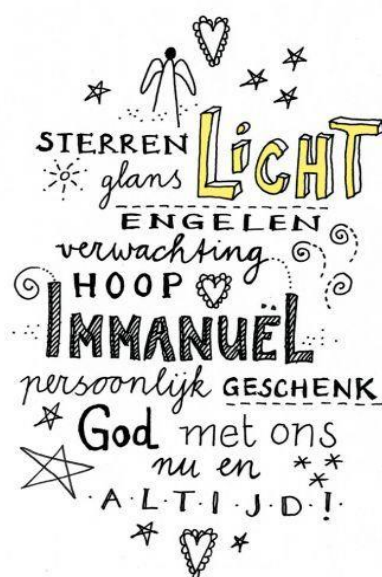 STERREN LICHT
glans
ENGELEN
verwachting
HOOP
IMMANUËL
persoonlijk GESCHENK
God met ons
nu en
A.L.T.I.J.D!